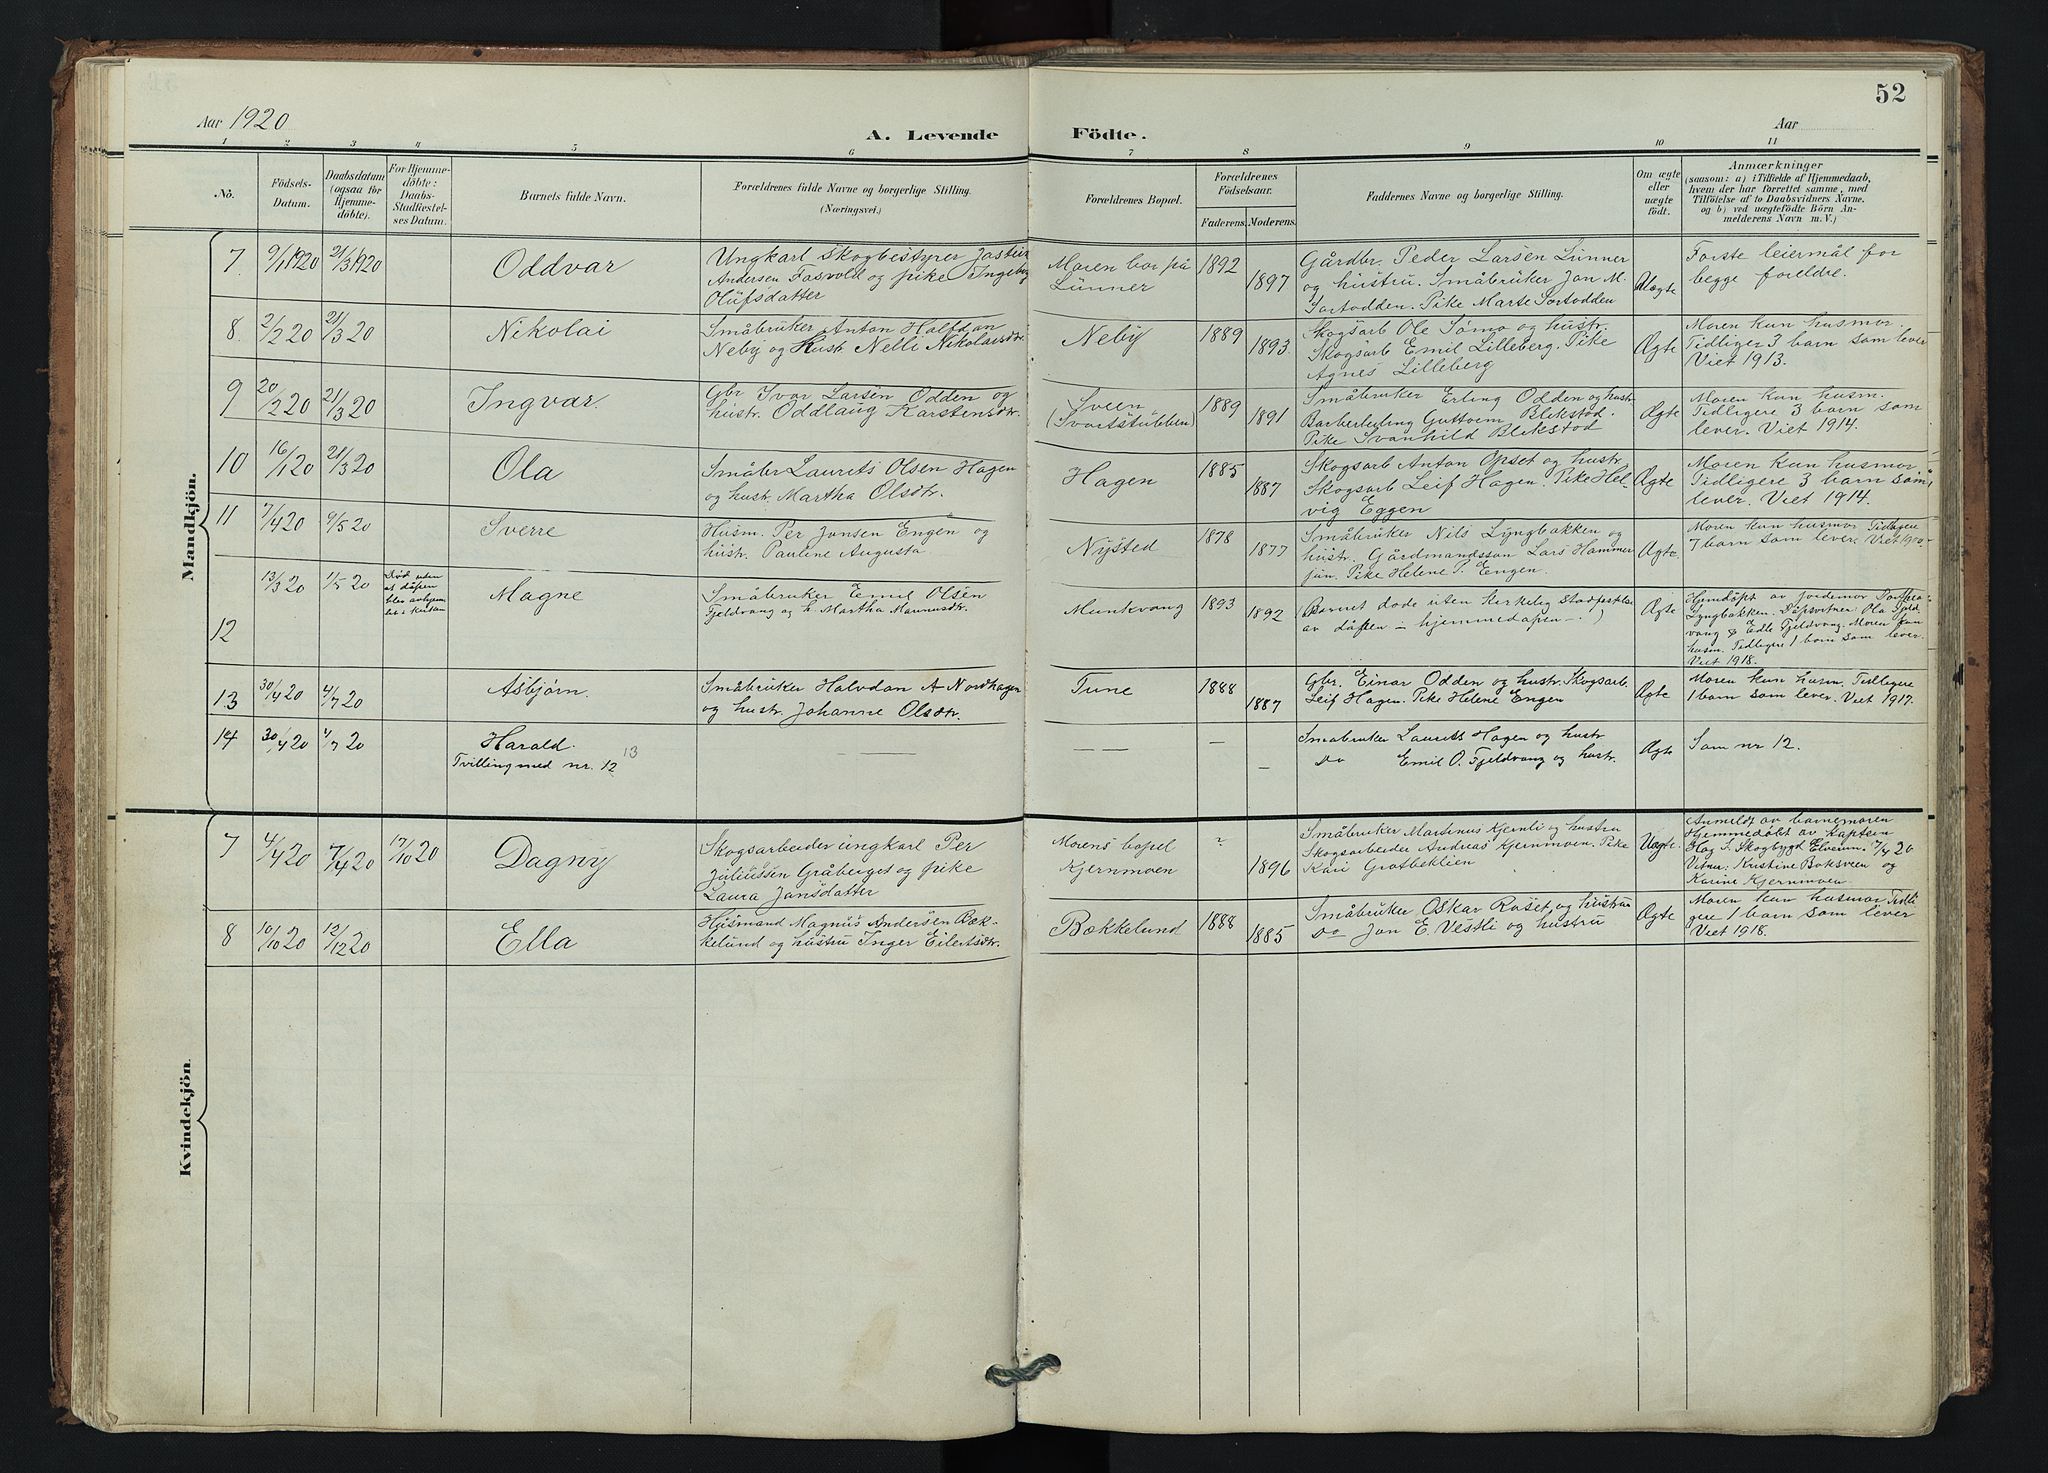 52
Aar 1920
A. Levende Födte.
Aar
1 2 3 4 5 6 7 8 9 10 11
No.
Födsels-Datum.
Daabsdatum (ogsaa for Hjemmedöbte).
For Hjemmedöbte: Daabs-Stadfæstelses Datum.
Barnets fulde Navn.
Forældrenes fulde Navne og borgerlige Stilling.
(Næringsvei.)
Forældrenes Bopæl.
Forældrenes Födselsaar.
Faderens. Moderens.
Faddernes Navne og borgerlige Stilling.
Om ægte eller uægte födt.
Anmærkninger
(saasom: a) i Tilfælde af Hjemmedaab,
hvem der har forrettet samme, med
Tilföielse af to Daabsvidners Navne.
og b) ved uægtefödte Börn An-
melderens Navn m. V.)
Mandkjön.
7 9/1 1920 21/3 1920 Oddvar
Ungkarl skogbestyrer Jostein
Andersen Fosvold og pike Ingeb
Olufsdatter
Moren bor på
Lunner
1892
1897
Gårdbr. Peder Larsen Lunner
og hustru. Småbruker Jon M.
Sortodden. Pike Marte Sortodden
Uægte
Første leiermål for
begge foreldre.
8 2/2 20 21/3 20 Nikolai
Småbruker Anton Halfdan
Neby og Hust. Nelli Nikolaisdtr.
Neby
1889
1893.
Skogsarb Ole Sømo og hustr.
Skogsarb Emil Lilleberg. Pike
Agnes Lilleberg
Ægte
Moren kun husmor.
Tidliger 3 barn som lever
Viet 1913.
9 20/2 20 21/3 20 Ingvar.
Gbr Ivar Larsen Odden og
hustr. Oddlaug Karstensdtr.
Sveen
(Svartstubben)
1889
1891
Småbruker Erling Odden og hustr
Barberlærling Guttorm Blikstod.
Pike Svanhild Blikstod
Ægte
Moren kun husm.
Tidligere 3 barn som
lever. Viet 1914.
10 16/1 20 21/3 20 Ola
Småbr Laurits Olsen Hagen
og hustr. Martha Olsdtr.
Hagen
1885
1887
Skogsarb Anton Opset og hustr.
Skogsarb Leif Hagen. Pike Hel-
vig Eggen
Ægte
Moren kun husmor
Tidligere 3 barn som
lever. Viet 1914.
11 7/4 20 9/5 20 Sverre
Husm. Per Jonsen Engen og
hustr. Pauline Augusta
Nysted
1878
1877
Småbruker Nils Lyngbakken og
hustr. Gårdmandssøn Lars Hammer
jun. Pike Helene P. Engen.
Ægte.
Moren kun husmor Tidligere
7 barn som lever. Viet 1900-
12 13/3 20 1/5 20
Død uden
at dåpen
blev avhjem
let i kirken
Magne
Småbruker Emil Olsen
Fjeldvang og h. Martha Magnusdtr.
Munkvang
1893
1892
(Barnet døde uten kirkelig stadfestelse
av dåpen - hjemmedåpen -.)
Ægte
Hjemdøpt av jordemor Dorthea
Lyngbakken. Dåpsvitner: Ola Fjeld
vang & Edle Fjeldvang. Moren kun
husm. Tidligere 1 barn som lever.
Viet 1918.
13 30/4 20 4/7 20 Asbjørn.
Småbruker Halvdan A Nordhagen
og hustr. Johanne Olsdtr.
Tune
1888
1887
Gbr. Einar Odden og hustr. Skogsarb.
Leif Hagen. Pike Helene Engen
Ægte
Moren kun husm. Tidligere
1 barn som lever. Viet 1917.
14 30/4 20 4/7 20 Harald.
Tvilling med nr. 12 13
— —
— —
—
—
Småbruker Lauritz Hagen og hustr
Do Emil O. Fjeldvang og hustr.
Ægte
Som nr 12.
Kvindekjön.
7 4/4 20 7/4 20 17/10 20 Dagny
Skogsarbeider ungkarl Per
Juliussen Gråberget og pike
Laura Jonsdatter
Morens bopel
Kjernmoen
?
1896
Småbruker Martinus Kjernli og hustru
Skogsarbeider Andreas Kjernmoen. Pike
Kari Grøtbekklien
Uægte.
Anmeldt av barnemoren
Hjemmedøbt av kaptein
Hag I. Skogbygd Elverum. 7/4 20
Vitner: Kristine Baksveen og
Karine Kjernmoen
8 10/10 20 12/12 20 Ella
Husmand Magnus Andersen Bæk-
kelund og hustru Inger Eilertsdtr.
Bækkelund
1888
1885
Småbruker Oskar Raset og hustru
Do Jon E. Vestli og hustru
Ægte
Moren kun husmor Tidli
gere 1 barn som lever
Viet 1918.